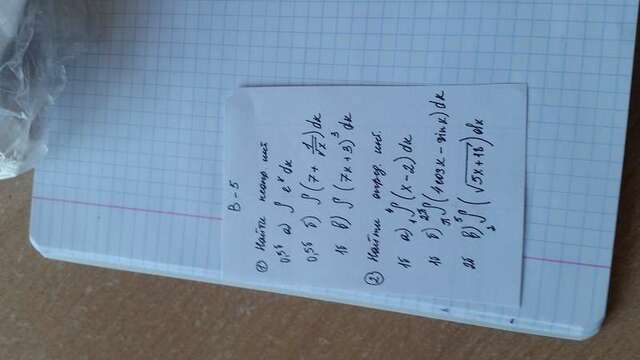 В-5
① Найти неопр. инт.
0,5б а) ∫ eˣ dx
0,5б б) ∫ (7 + 1/√x) dx
1б в) ∫ (7x + 3)³ dx
② Найти опред. инт.
1б а) ₁∫⁴ (x - 2) dx
1б б) π∫2π (4 cos x - sin x) dx
2б в) ∫ (√5x+16) dx